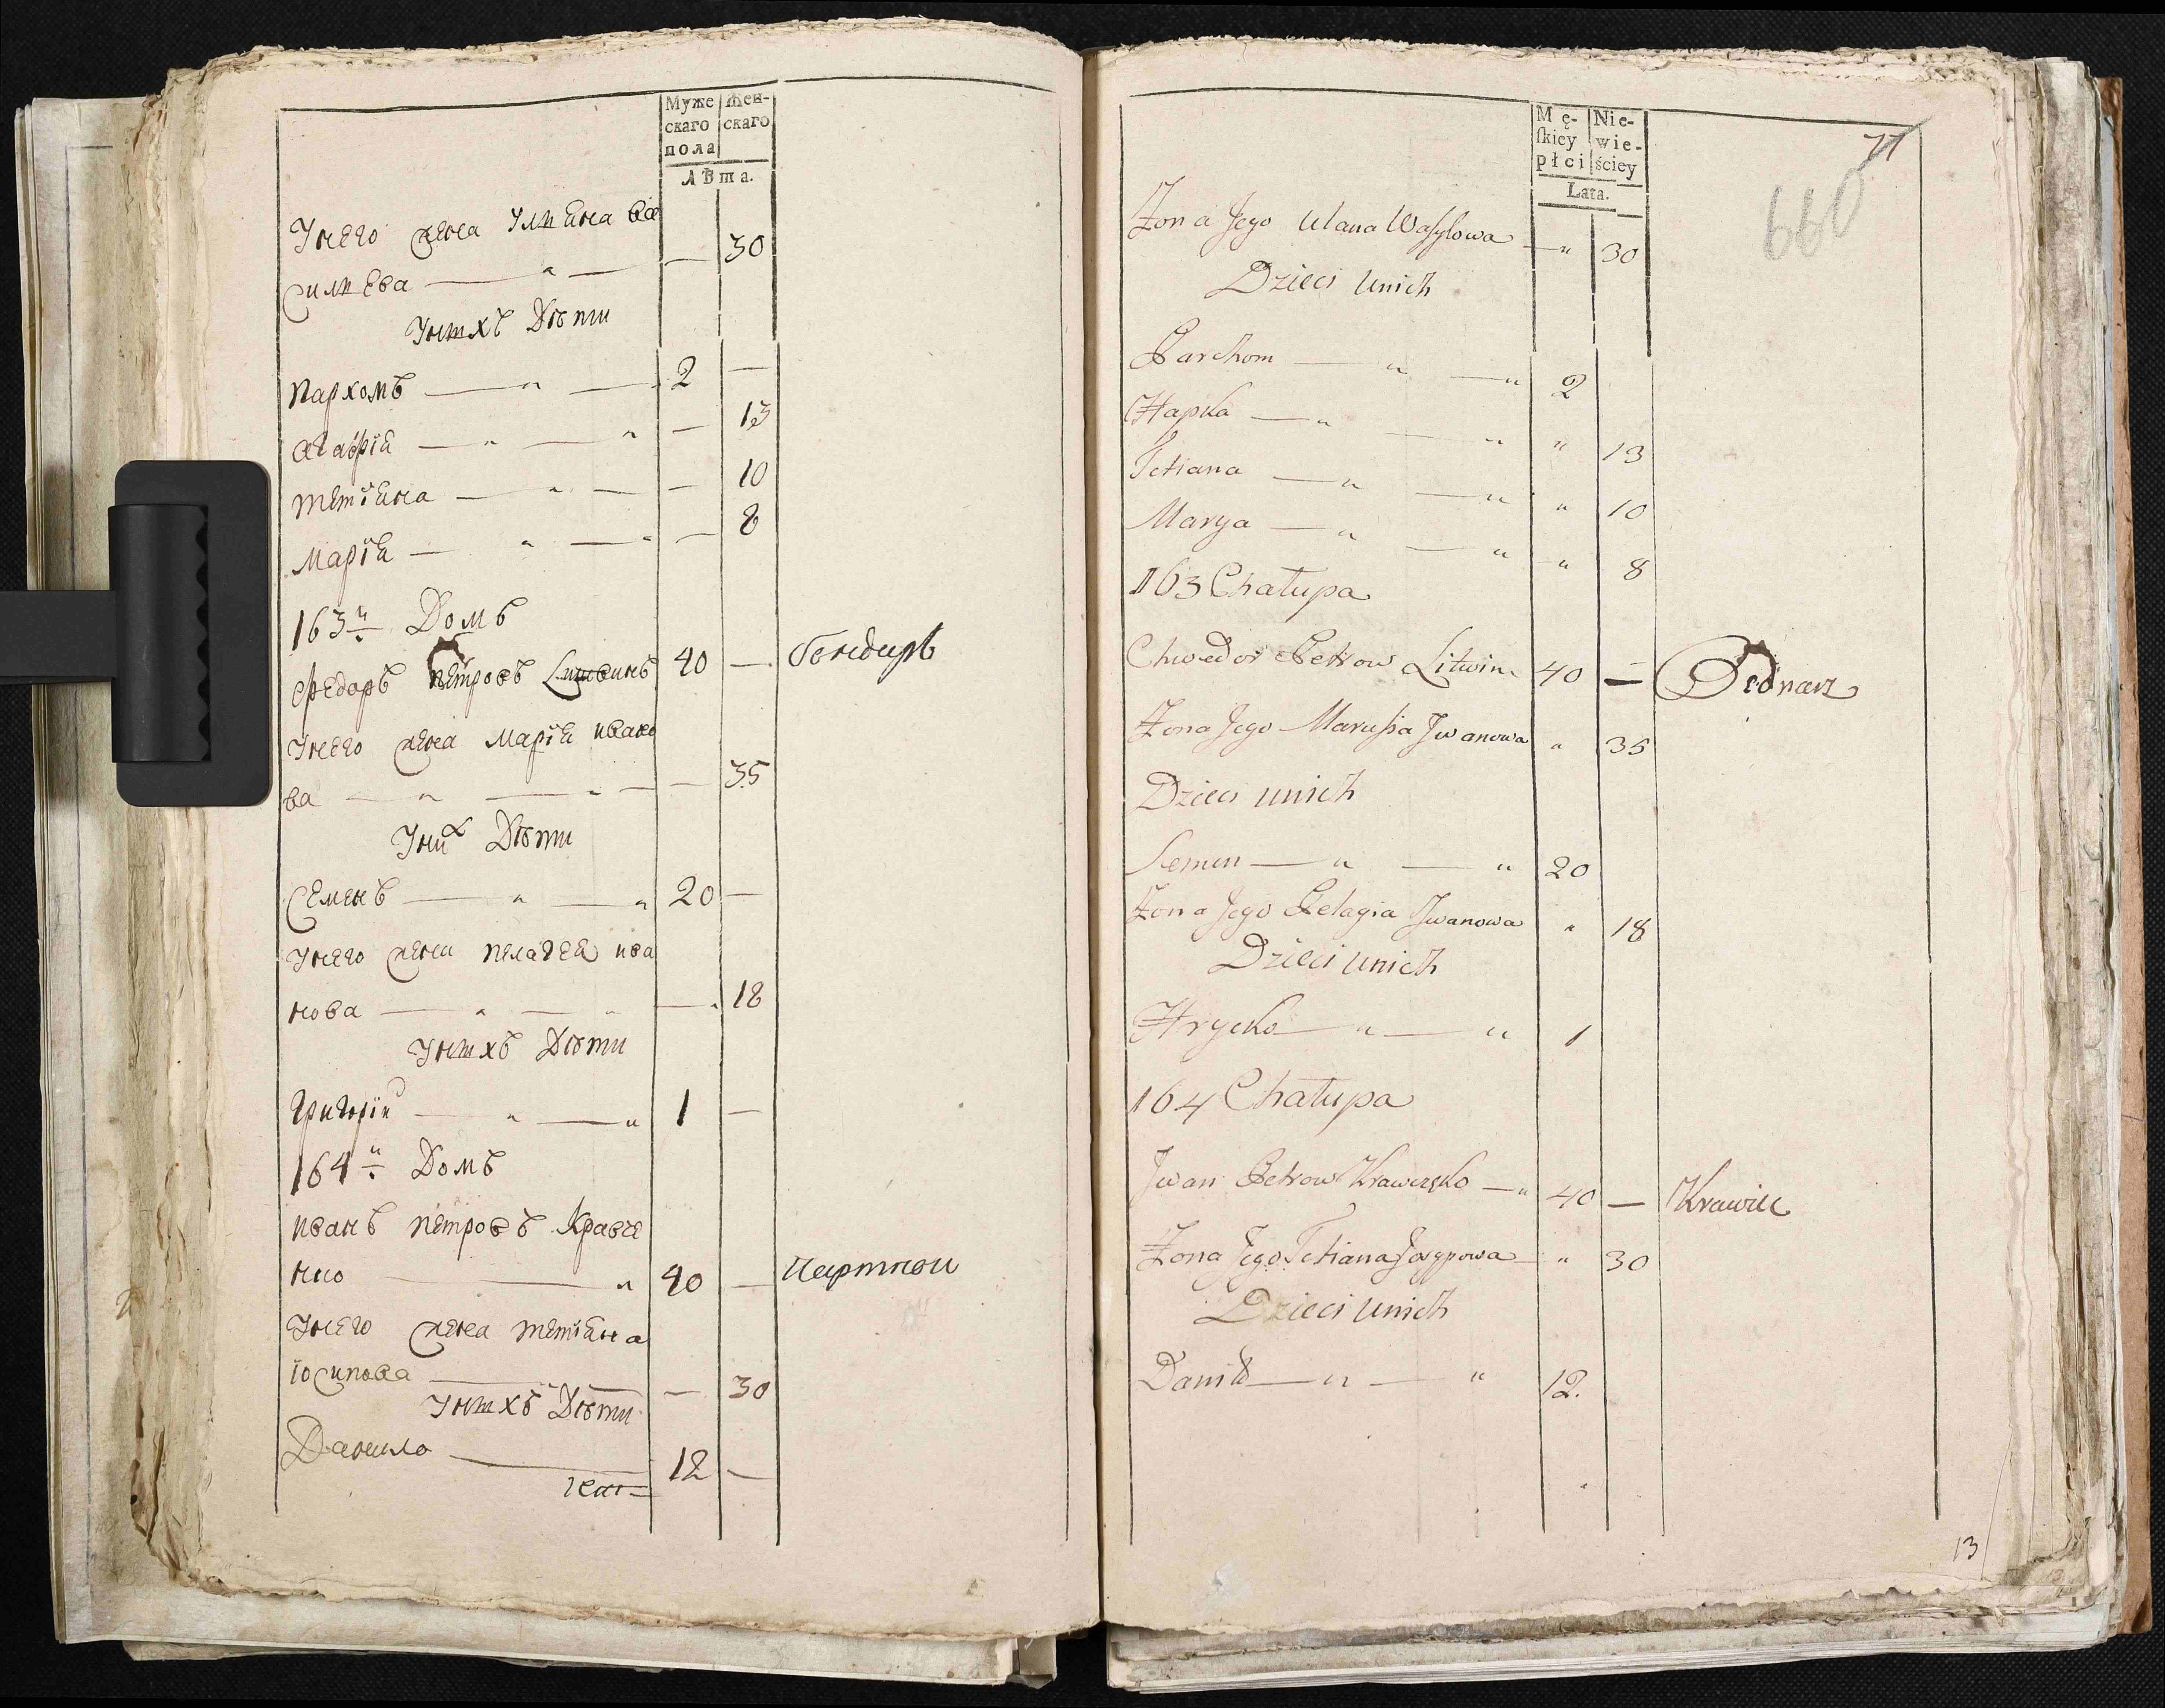 Муже
скаго
пола
Жен-
скаго
Лѣта.
Унего жена Улияна Ва
силиева — " — — 30
Унихъ Дѣти
Пархомъ — " — 2 —
Агафия — " — " — 13
Тетияна — " — — 10
Мария — " — " — 8
163й Домъ
Федоръ Петровъ Литвинъ 40 — бондаръ
Унего жена Мария Ивано
ва — " — " — — 35
Уних Дѣти
Семенъ — " — " 20 —
Унего жена Пелагея Ива
нова — " — " — 18
Унихъ Дѣти
Григорий — " — " 1 —
164й Домъ
Иванъ Петровъ Кравче
нко — " 40 — Портной
Унего жена Тетияна
Іосипова — — 30
Унихъ Дѣти
Данило — 12 —
Mę-
ſkiey
płci
Nie-
wie-
ściey
Lata.
77
660
Żona Jego Ulana Wasylowa — " 30
Dzieci unich
Parchom — " — " 2
Hapka — " — " " 13
Tetiana — " — " " 10
Marya — " — " " 8
163 Chałupa
Chwedor Petrow Litwin 40 — Bednarz
Żona Jego Marusia Jwanowa " 35
Dzieci unich
Semen — " — " 20
Żona Jego Pelagia Jwanowa " 18
Dzieci unich
Hrycko — " — " 1
164 Chałupa
Jwan Petrow Krawczęko — " 40 — Krawiec
Żona Jego Tetiana Josypowa — " 30
Dzieci unich
Daniło — " — " 12.
13